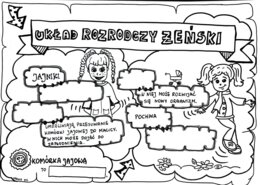 UKŁAD ROZRODCZY ŻEŃSKI
JAJNIKI
W NIEJ MOŻE ROZWIJAĆ
SIĘ NOWY ORGANIZM.
POCHWA
UMOŻLIWIAJĄ PRZESUWANIE
KOMÓRKI JAJOWEJ DO MACICY.
W NICH MOŻE DOJŚĆ DO
ZAPŁODNIENIA.
KOMÓRKA JAJOWA
TO